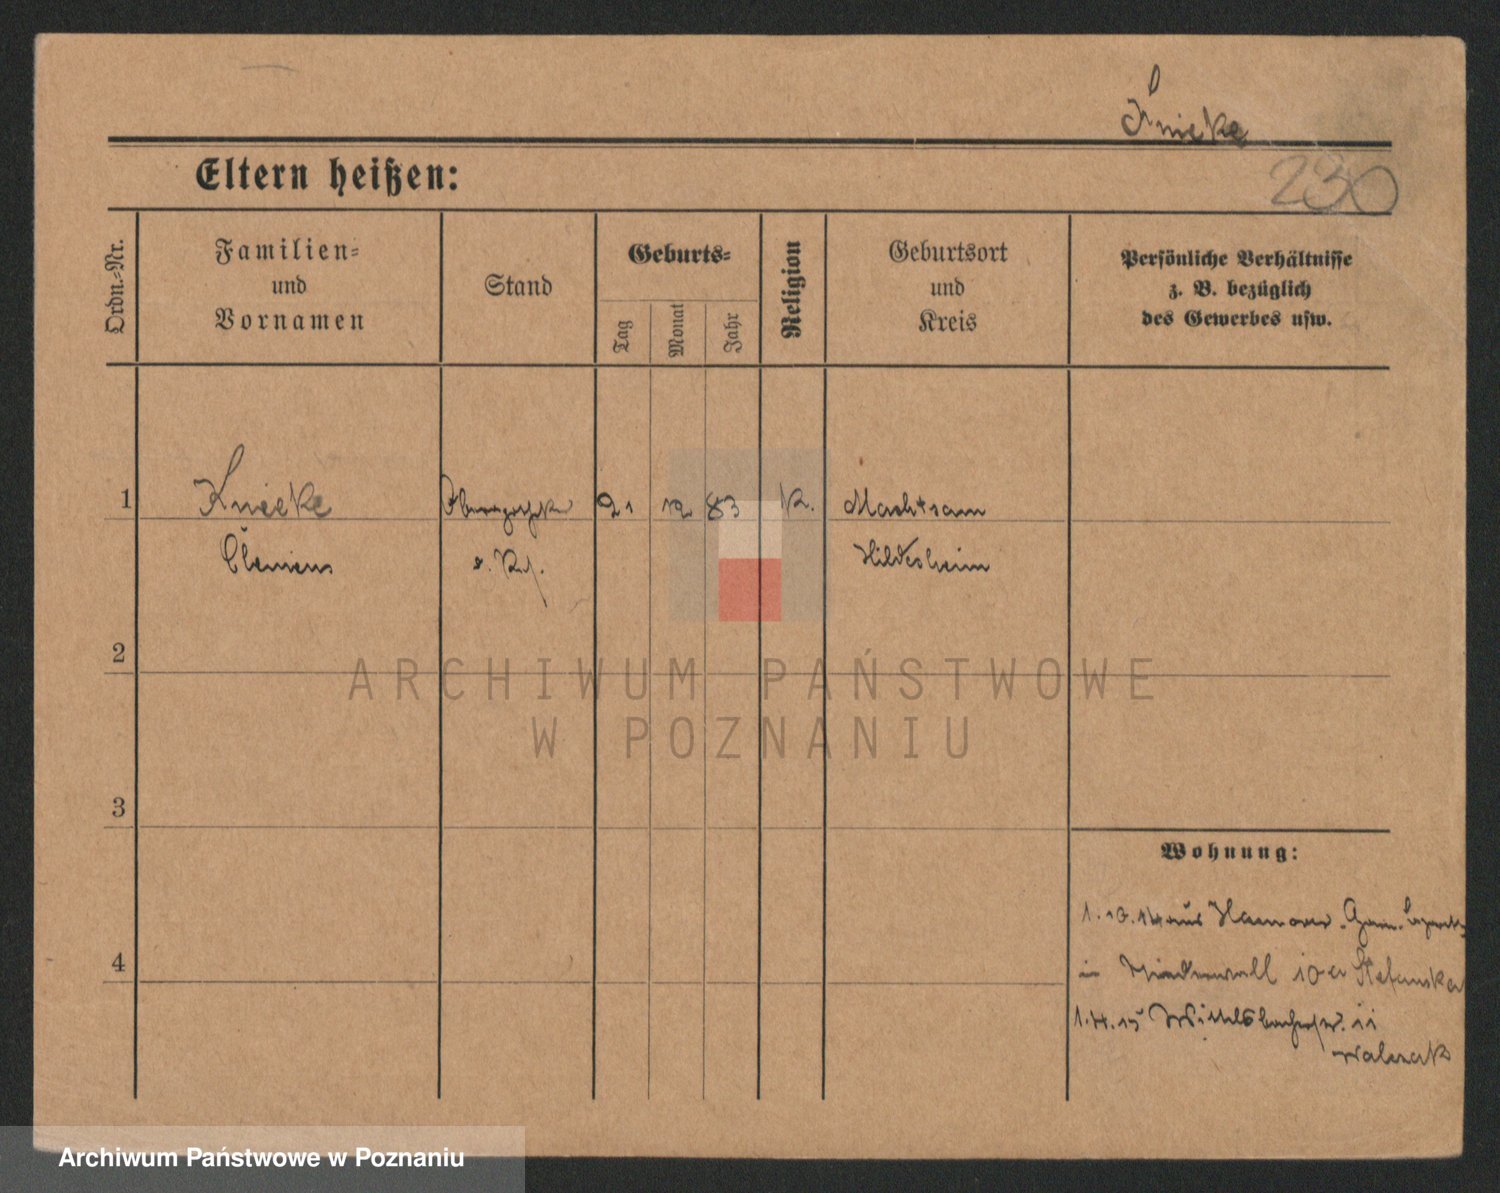 Knieke
Eltern heißen:
230
Ordn.-Nr.
Familien-
und
Vornamen
Stand
Geburts-
Tag
Monat
Jahr
Religion
Geburtsort
und
Kreis
Persönliche Verhältnisse
z. B. bezüglich
des Gewerbes usw.
1
Knieke
21
12
83
K.
Machtsam
Clemens
Hildesheim
2
ARCHIWUM PAŃSTWOWE
W POZNANIU
3
Wohnung:
1.10.14 aus Hannover
4
10 er Stefanska
1.4.15 Wittelsbacherstr. 11
Walczak
Archiwum Państwowe w Poznaniu